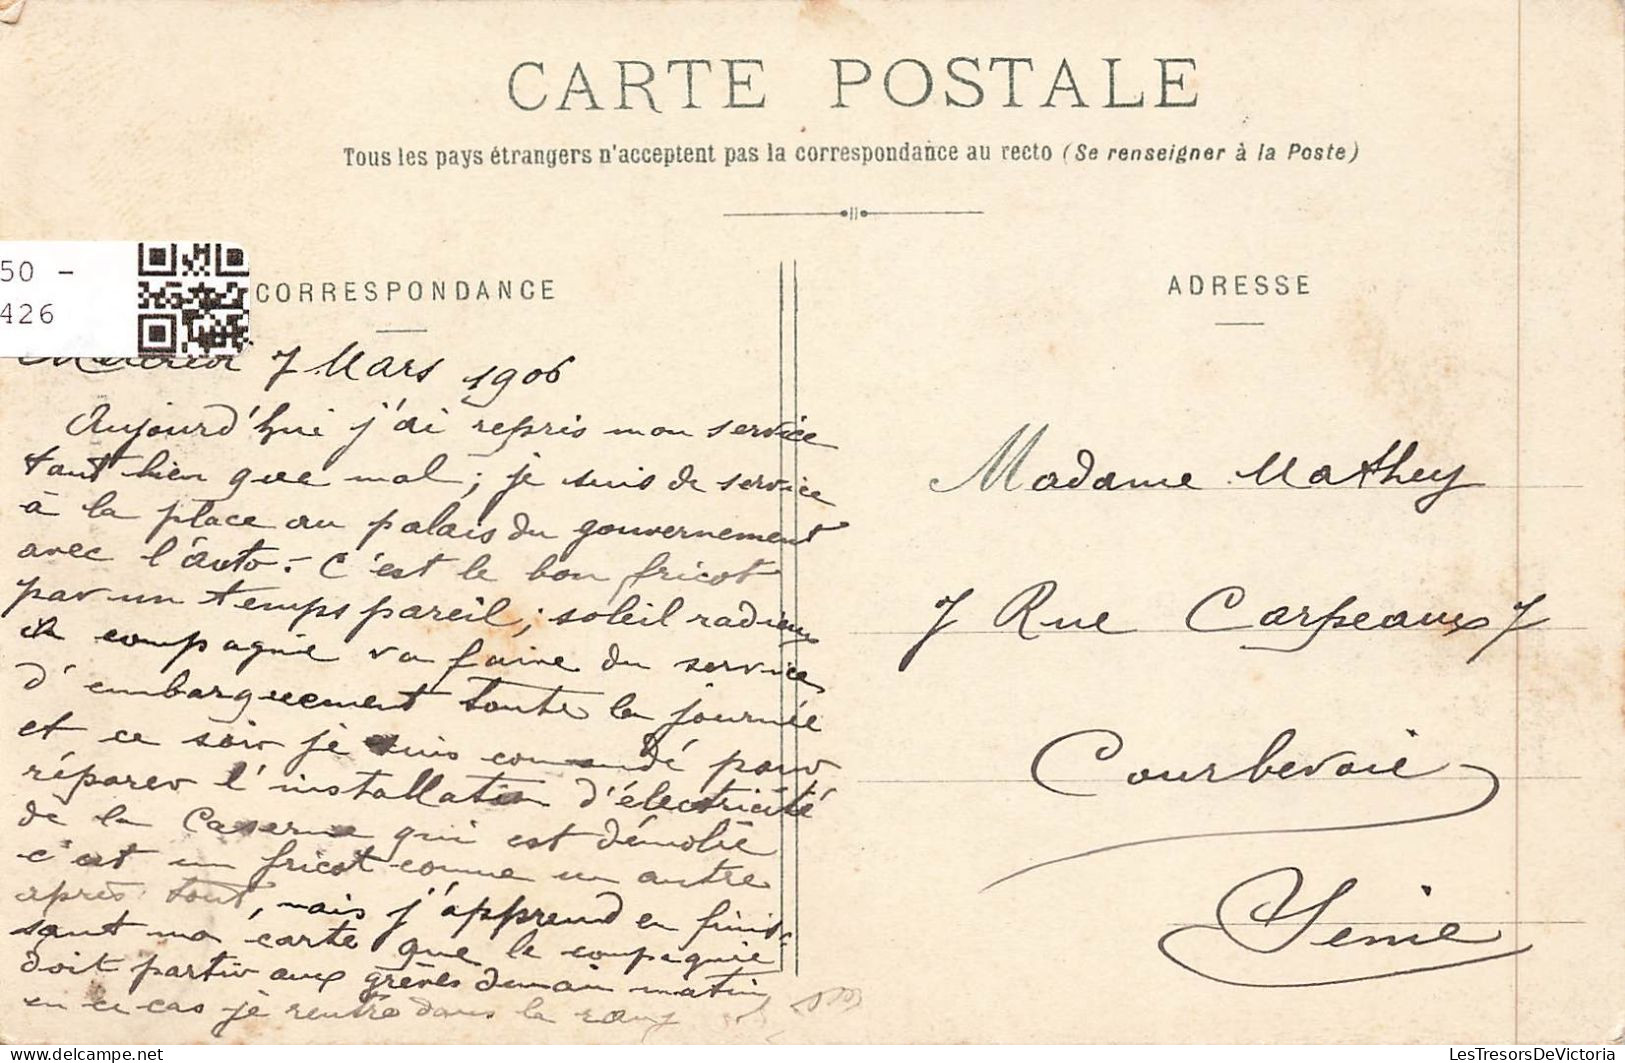 CARTE POSTALE
Tous les pays étrangers n'acceptent pas la correspondance au recto (Se renseigner à la Poste)
50 -
426
CORRESPONDANCE
ADRESSE
7 Mars 1906
Aujourd'hui j'ai repris mon service
tant bien que mal; je suis de service
à la place au palais du gouvernement
avec l'auto. C'est le bon fricot
par un temps pareil; soleil radieux
la compagnie va faire du service
d'embarquement toute la journée
et ce soir je suis commandé pour
réparer l'installation d'électricité
de la Caserne qui est démolie
c'est un fricot comme un autre
après tout, mais j'apprend en finis-
sant ma carte que la compagnie
doit partir aux grèves demain matin
en ce cas je rentre dans le rang
Madame Mathey
7 Rue Carpeaux 7
Courbevoie
Seine
LesTresorsDeVictoria